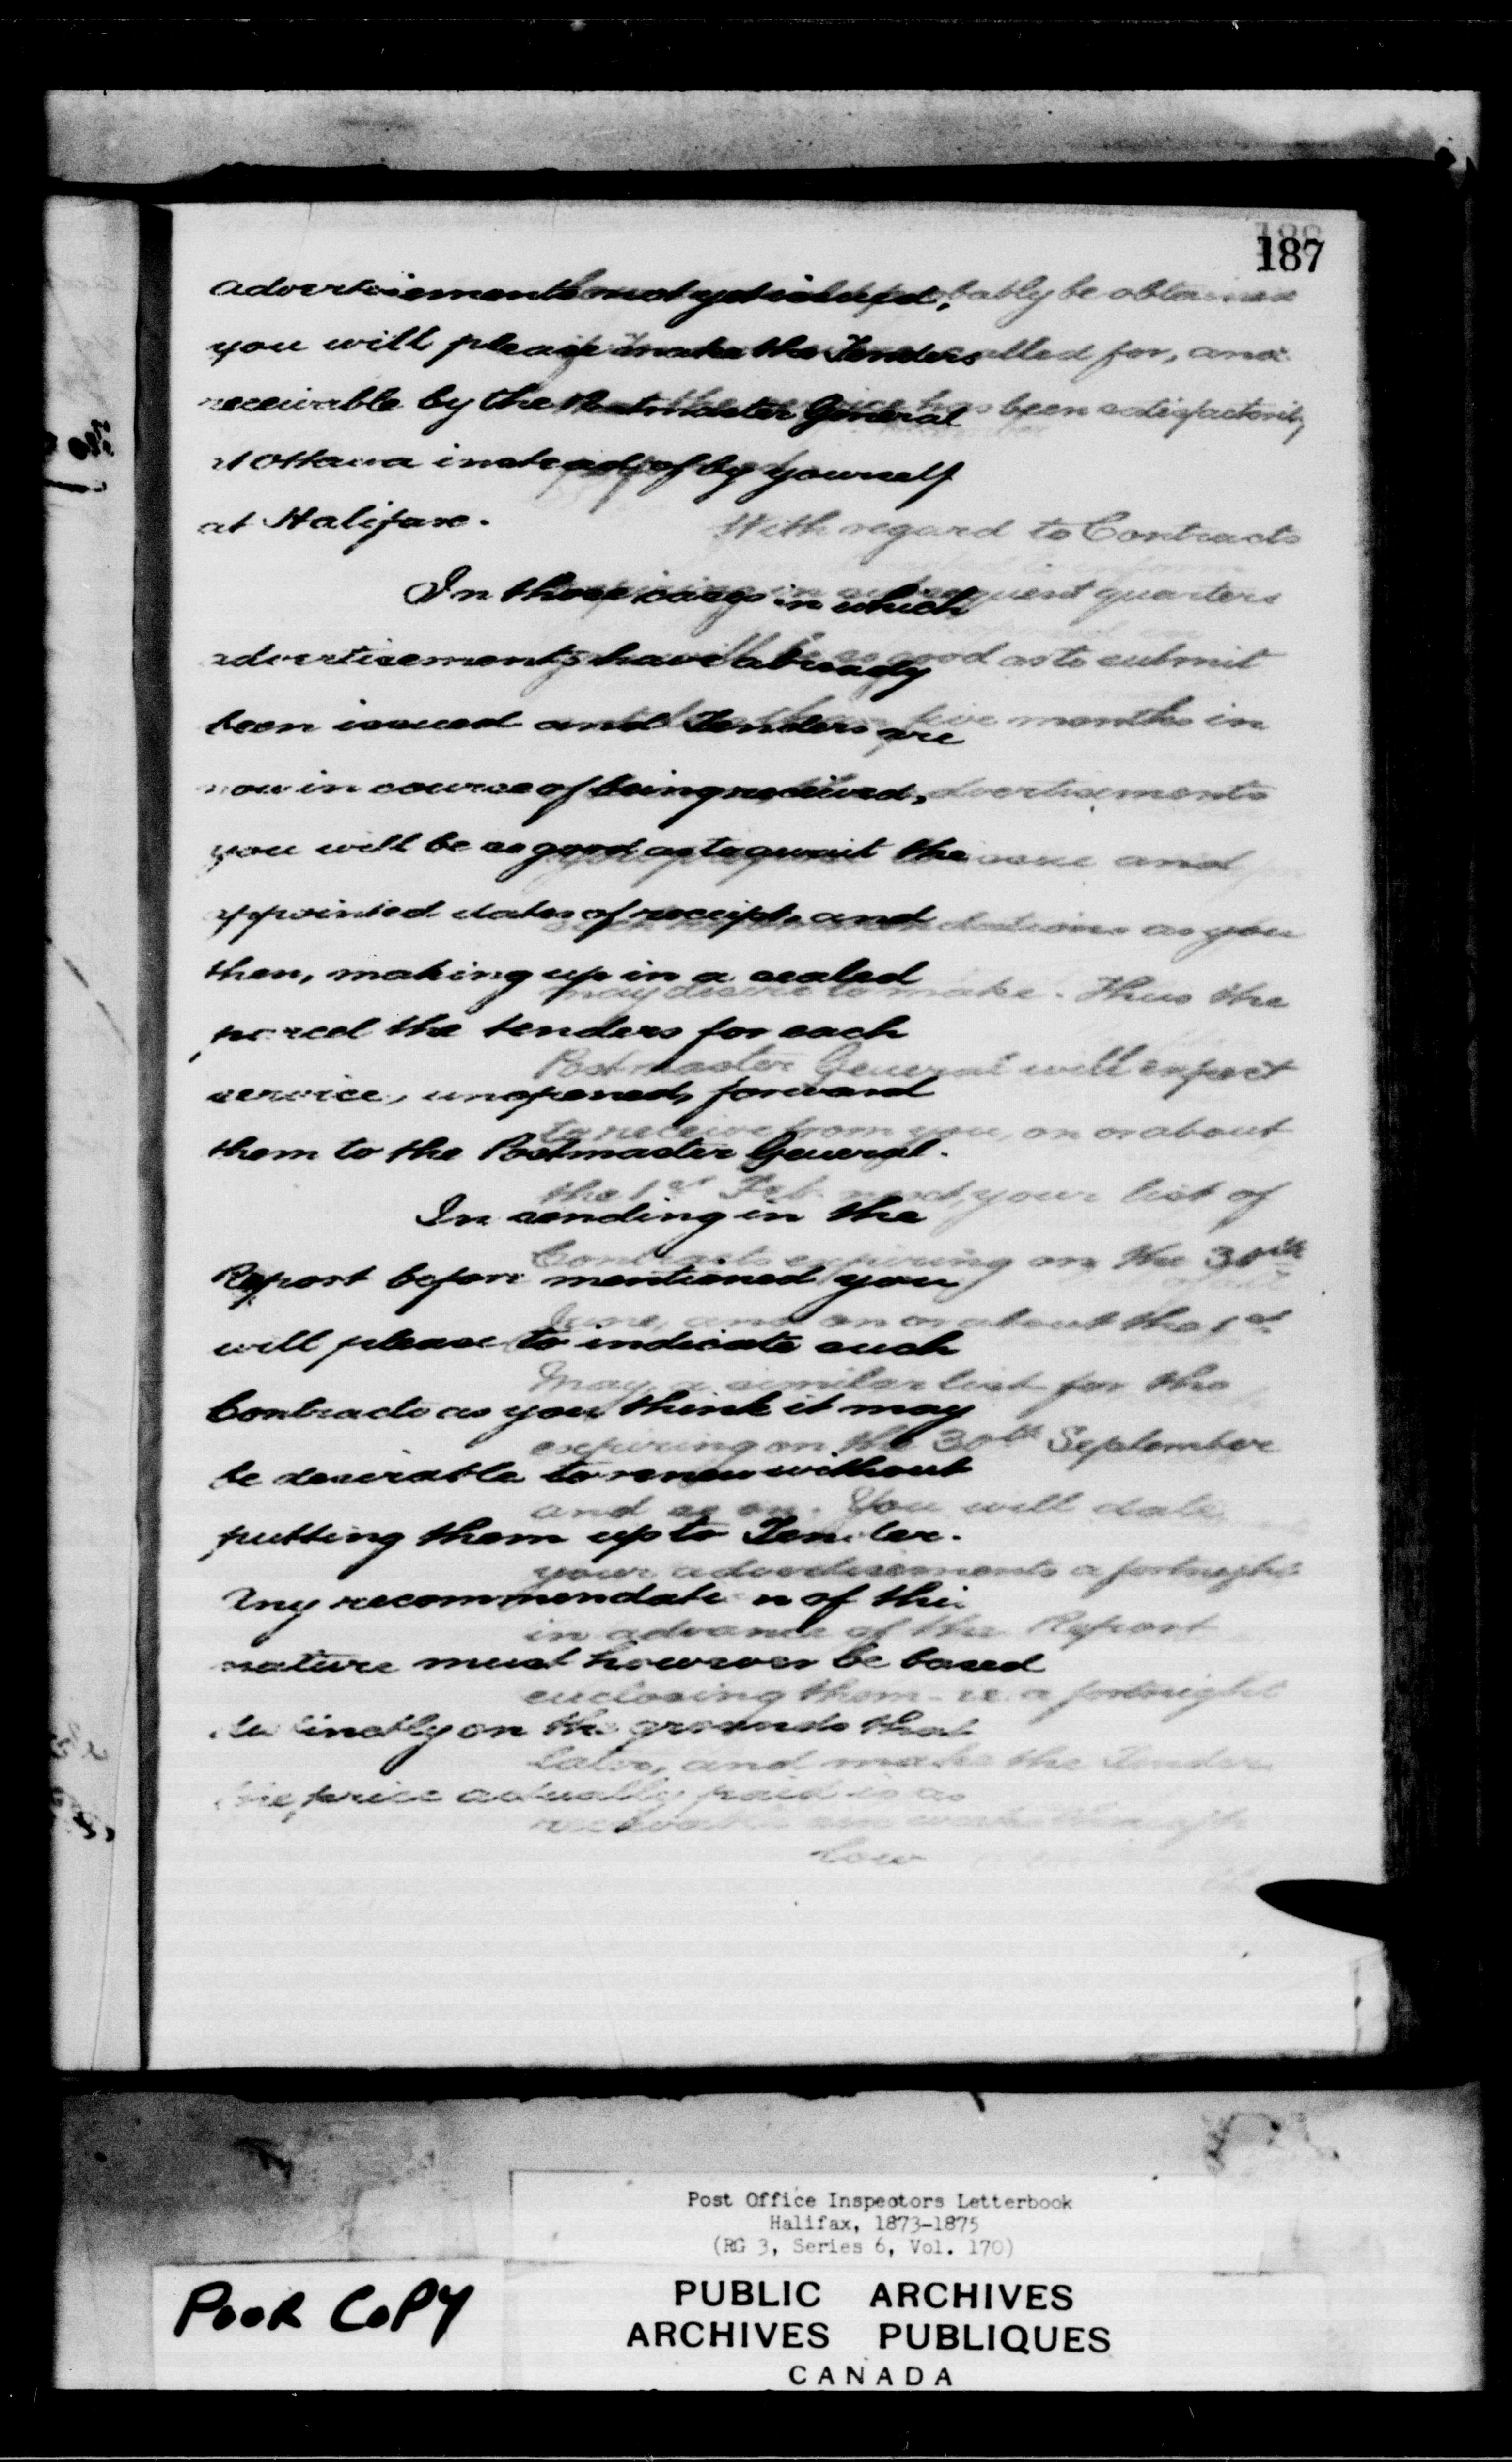 187
advertisements not yet issued,
you will please make the Tenders
receivable by the Postmaster General
at Ottawa instead of by yourself
at Halifax.
In those cases in which
advertisements have already
been issued and Tenders are
now in course of being received,
you will be so good as to await the
appointed dates of receipt, and
then, making up in a sealed
parcel the tenders for each
service, unopened, forward
them to the Postmaster General.
In sending in the
Report before mentioned you
will please to indicate such
Contracts as you think it may
be desirable to renew without
putting them up to Tender.
Any recommendation of this
nature must however be based
distinctly on the grounds that
the price actually paid is as
low
188
probably be obtained
called for, and
has been satisfactorily
performed
With regard to Contracts
expiring in subsequent quarters
you will be so good as to submit
five months in
advertisements
same and
recommendations as you
may desire to make. Thus the
Postmaster General will expect
to receive from you, on or about
the 1st Feb. next, your list of
Contracts expiring on the 30th
June, and on or about the 1st
May a similar list for the
expiring on the 30th September
and so on. You will date
your advertisements a fortnight
in advance of the Report
enclosing them - i.e. a fortnight
later, and make the Tenders
receivable six weeks
Post Office Inspectors Letterbook
Halifax, 1873-1875
(RG 3, Series 6, Vol. 170)
POOR COPY
PUBLIC ARCHIVES
ARCHIVES PUBLIQUES
CANADA